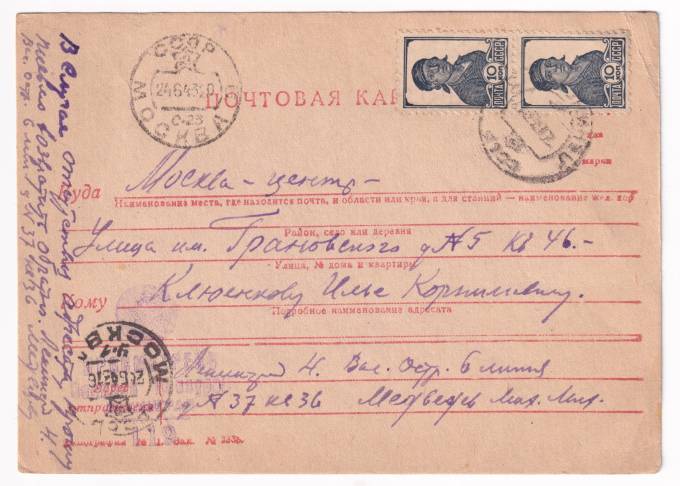 СССР
24 6 43
МОСКВА
ПОЧТА 10 КОП СССР
ПОЧТА 10 КОП СССР
ПОЧТОВАЯ КАР
марки
Куда Москва - центр -
Наименование места, где находится почта, и области или края, а для станций — наименование жел. дор
Район, село или деревня
Улица им. Грановского д № 5 кв 46. -
Улица, № дома и квартиры
Кому Клюенкову Илье Корниловичу.
Подробное наименование адресата
Вас. Остр. 6 линия
д № 37 кв 36 Медведев Мих. Мих.
Адрес отправителя
МОСКВА
В случае отсутствия адресата прошу
Вас. о. 6 лин д № 37 кв 36